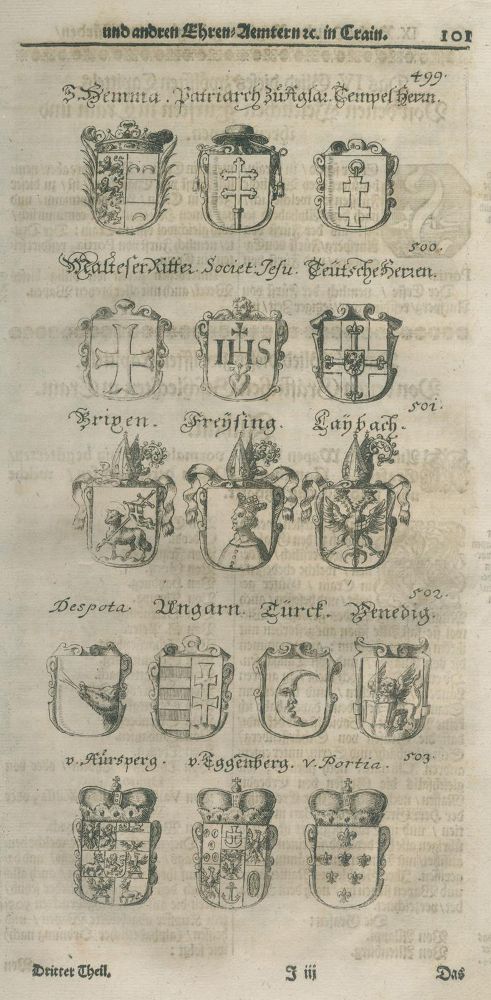 und andren Ehren-Aemtern ꝛc. in Crain. 101
499.
S. Hemma. Patriarch zu Aglai. Tempel Herrn.
500.
Malteser Ritter. Societ. Jesu. Teütsche Herren.
IHS
501.
Brixen. Freysing. Laybach.
502.
Despota Ungarn. Türck. Venedig.
v. Aürsperg. v. Eggenberg. v. Portia. 503.
Dritter Theil. J iij Das